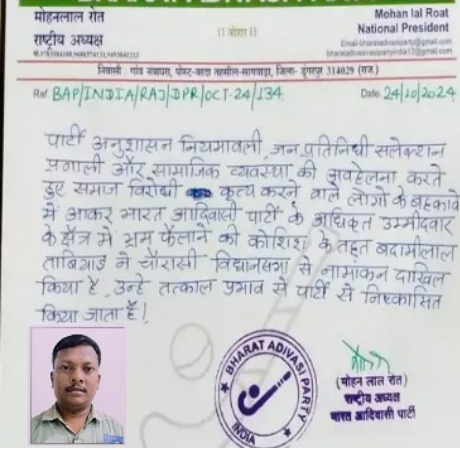 मोहनलाल रोत
राष्ट्रीय अध्यक्ष
।। जोहार ।।
Mohan lal Roat
National President
Email-bharatadivasiparty@gmail.com
bharatadivasipartyindia12@gmail.com
निवासी- गांव नवाघरा, पोस्ट-वरदा तहसील-सागवाड़ा, जिला- डूंगरपुर 314029 (राज.)
Ref. BAP/INDIA/RAJ/DPR/OCT-24/134
Date 24/10/2024
पार्टी अनुशासन नियमावली, जन प्रतिनिधी सलेक्शन
प्रणाली और सामाजिक व्यवस्था की अवहेलना करते
हुए समाज विरोधी कृत्य करने वाले लोगों के बहकावे
में आकर भारत आदिवासी पार्टी के अधिकृत उम्मीदवार
के क्षैत्र में भ्रम फैलाने की कोशिश के तहत बदामीलाल
ताबियाड ने चौरासी विधानसभा से नामांकन दाखिल
किया है, उन्हे तत्काल प्रभाव से पार्टी से निष्कासित
किया जाता है!
BHARAT ADIVASI PARTY
INDIA
(मोहन लाल रोत)
राष्ट्रीय अध्यक्ष
भारत आदिवासी पार्टी